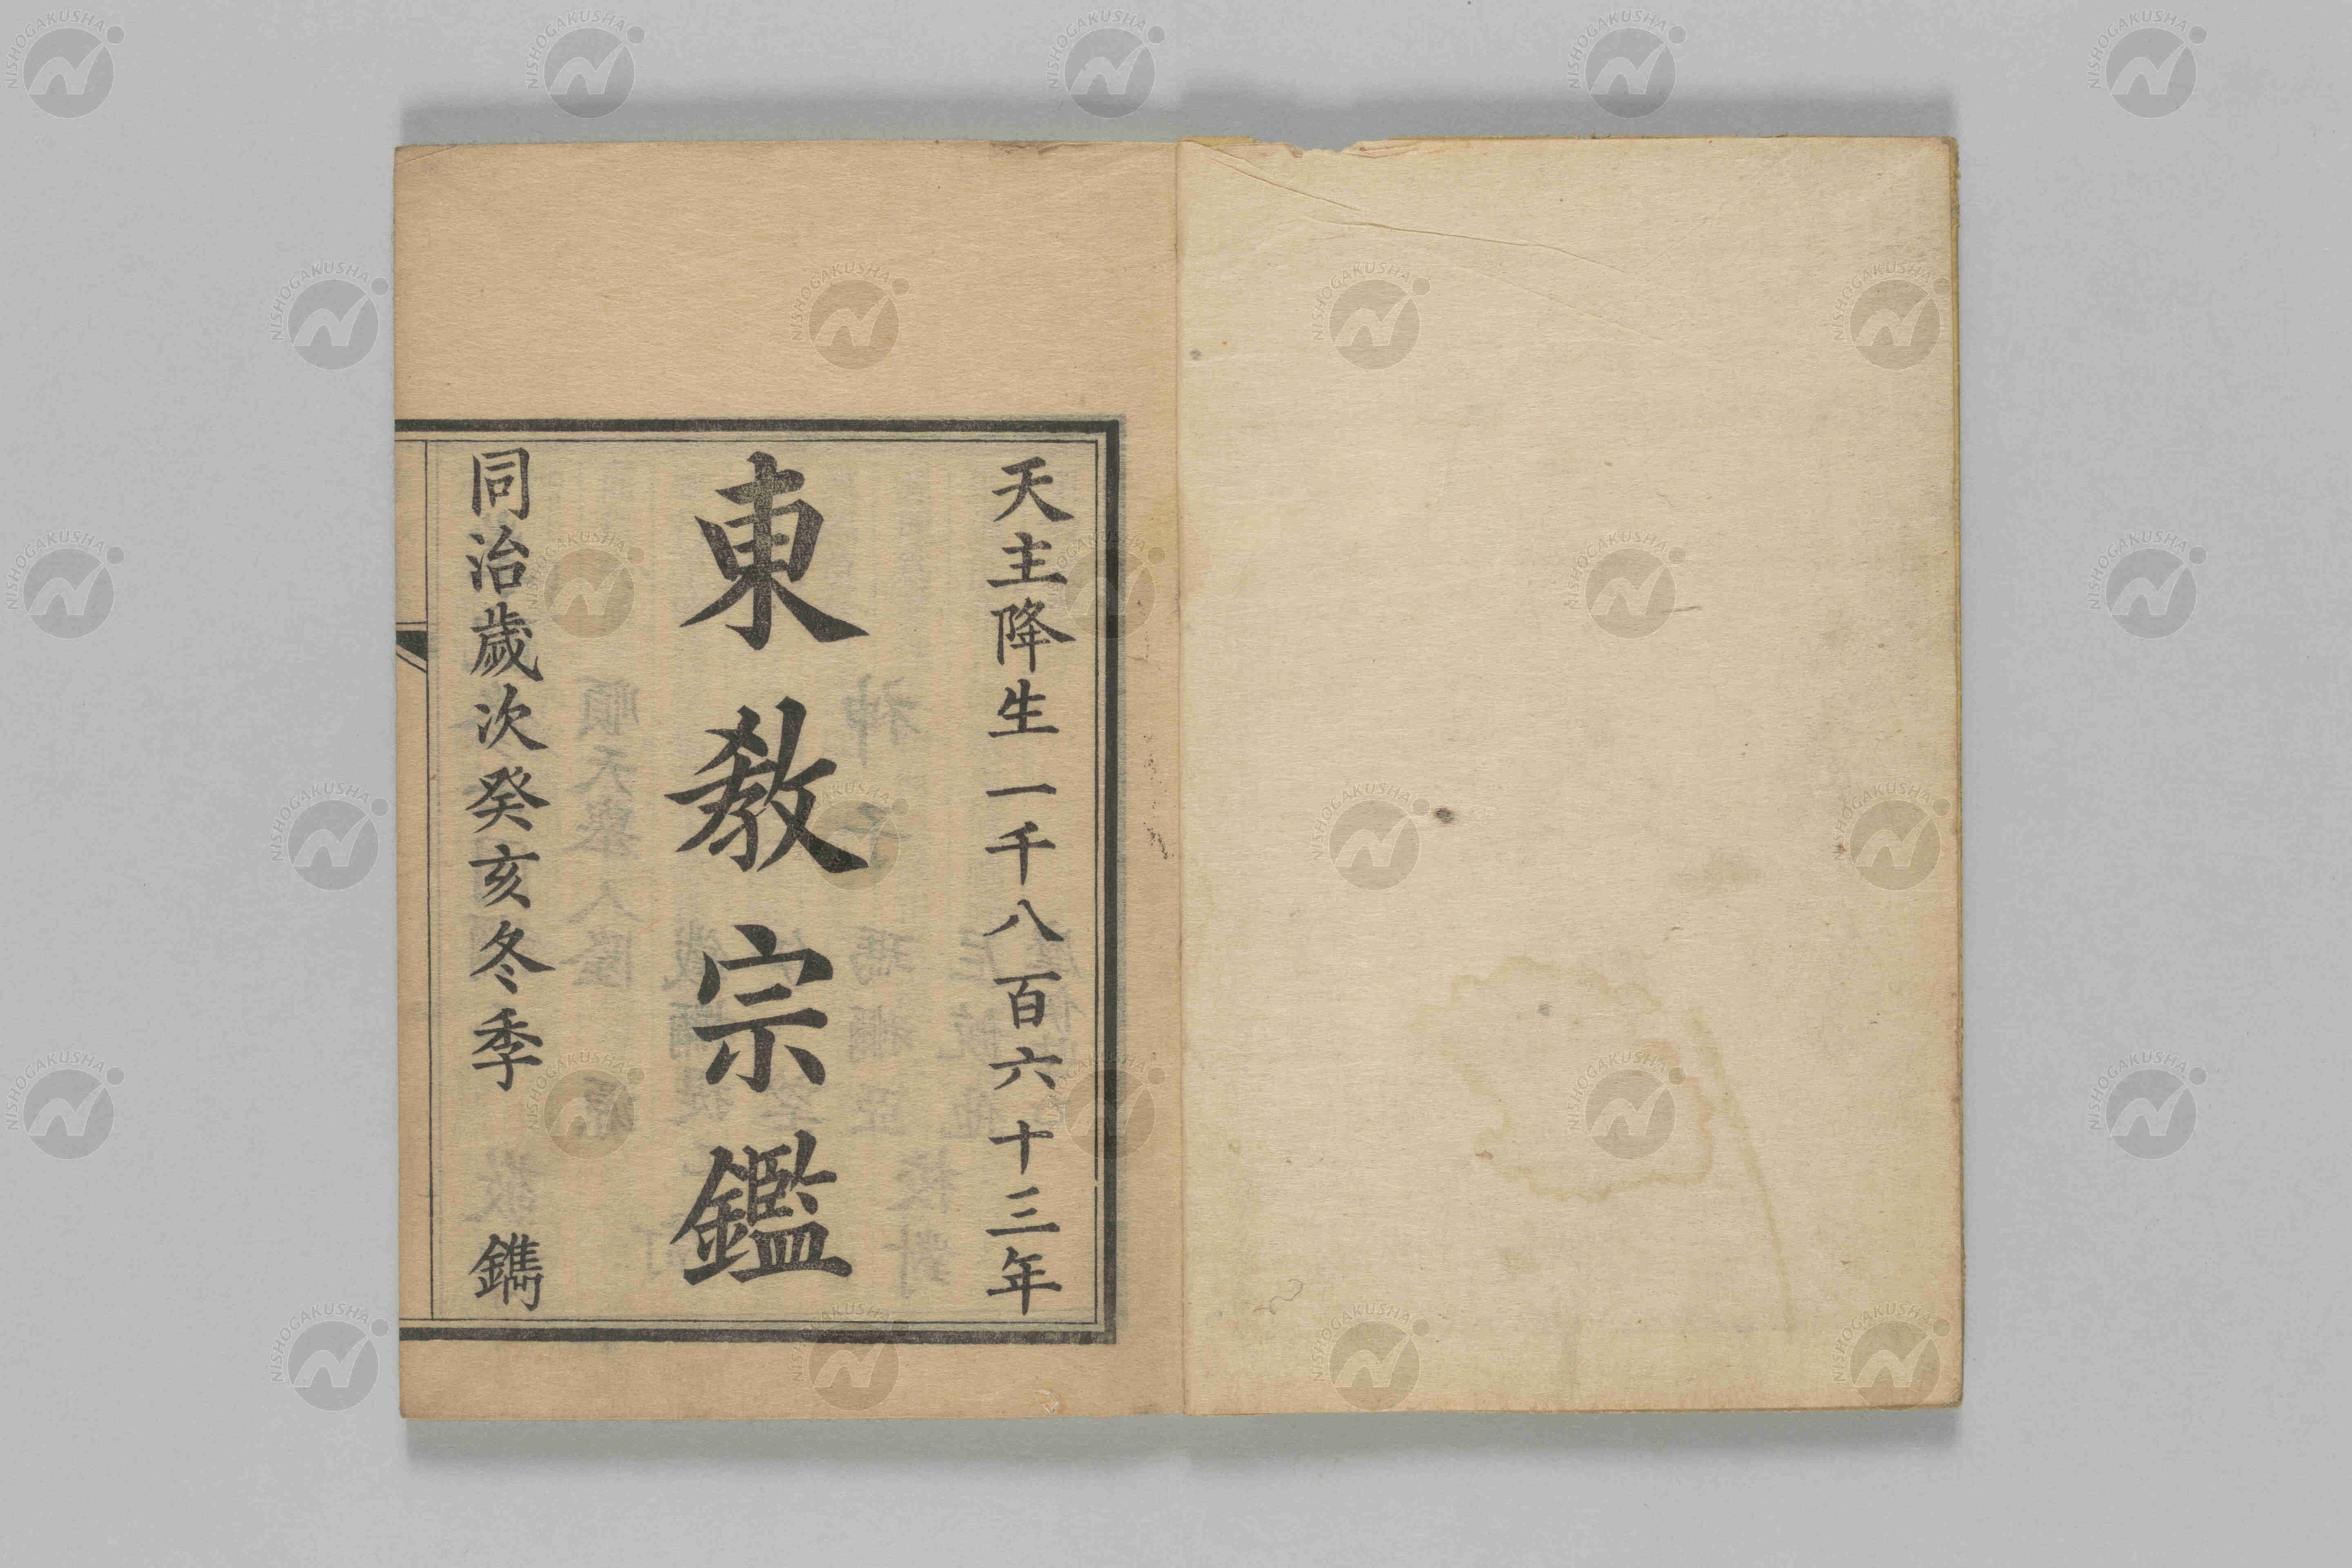 天主降生一千八百六十三年
東教宗鑑
同治歲次癸亥冬季 鐫
NISHOGAKUSHA